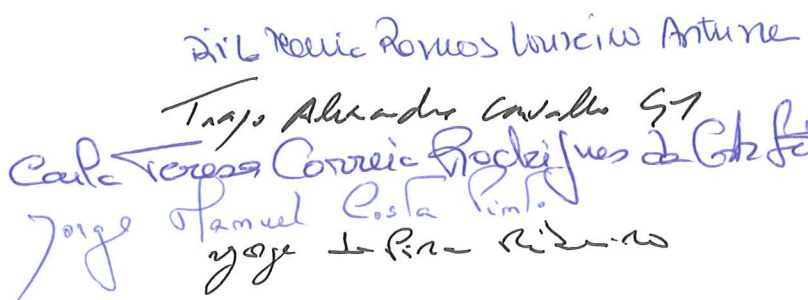 Maria Ramos Loureiro Antune
Tiago Alexandre Carvalho
Carla Teresa Correia Rodrigues da Costa
Jorge Manuel Costa Pinto
Jorge Ribeiro